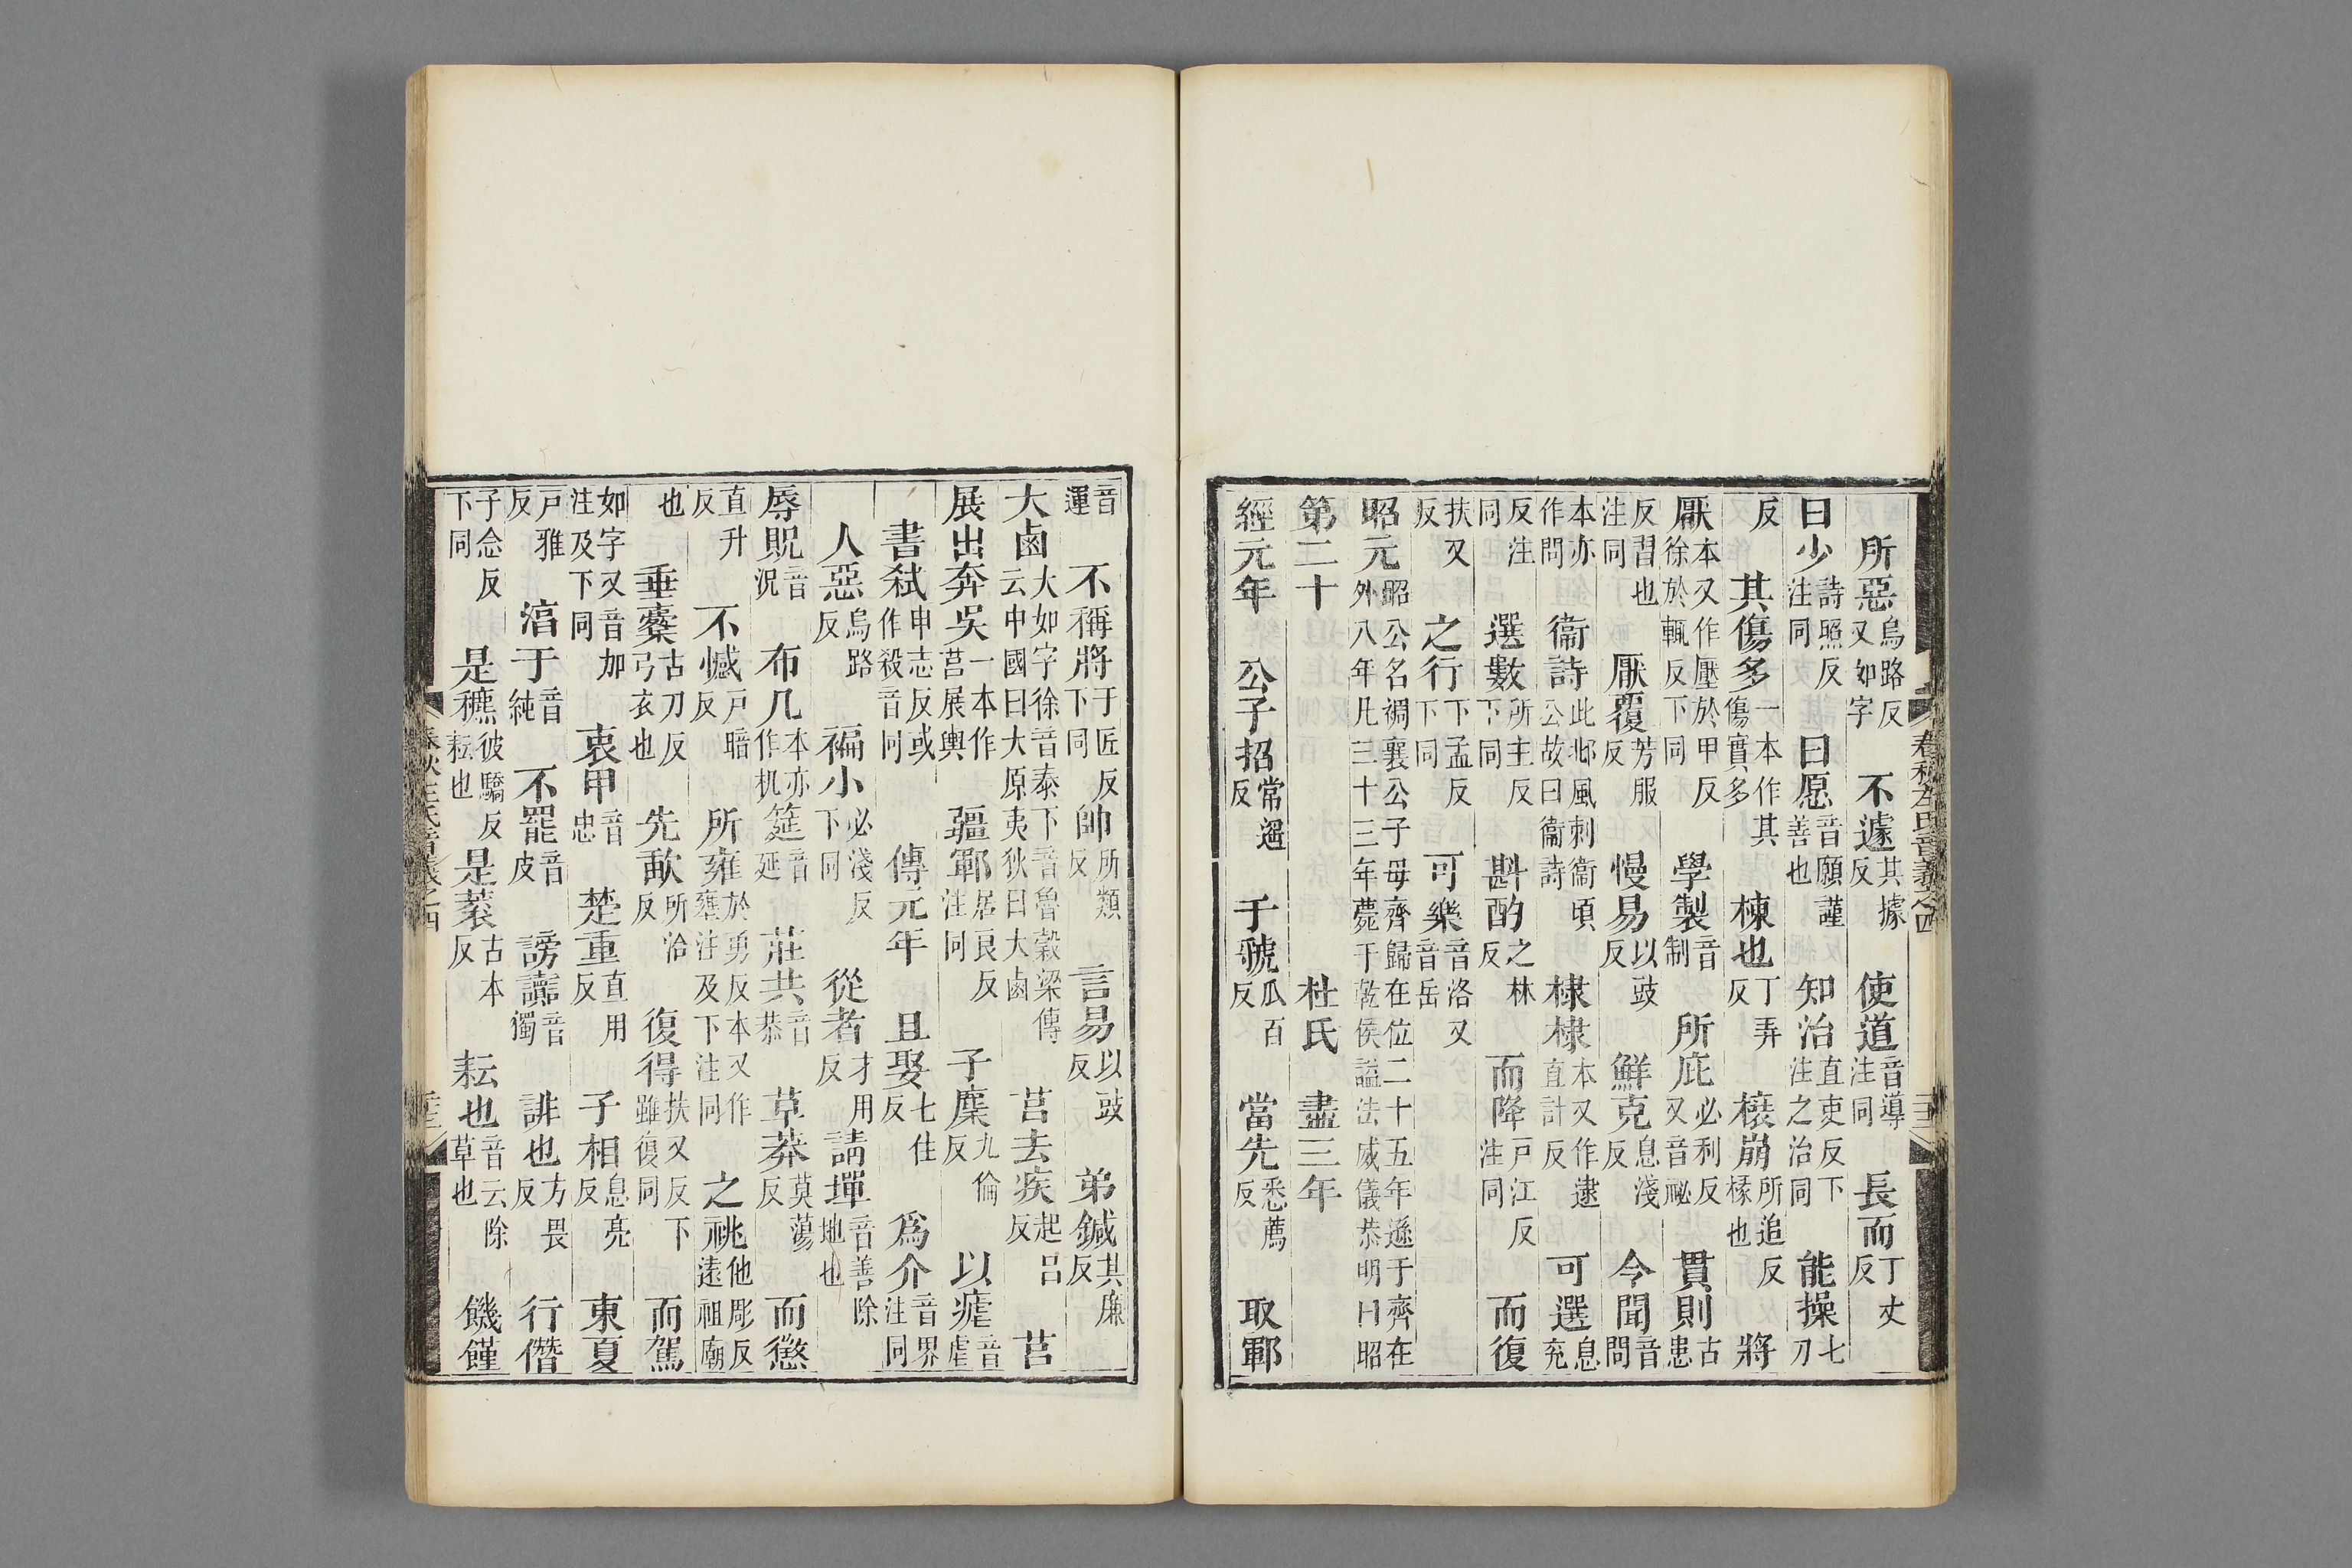 所惡烏路反又如字　不遽其據反　使道音導注同　長而丁丈反
曰少詩照反注同　曰愿音願謹善也　知治直吏反下注之治同　能操七刀
反　其傷多一本作其傷實多　棟也丁弄反　榱崩所追反榱也　將
厭本又作壓於甲反徐於輒反下同　學製音制　所庇必利反又音祕　貫則古患
反習也注同　厭覆芳服反　慢易以豉反　鮮克息淺反　今聞音問
本亦作問　衞詩此邶風刺衞頃公故曰衞詩　棣棣本又作逮直計反　可選息兖
反注同　選數所主反下同　斟酌之林反　而降戶江反注同　而復
扶又反　之行下孟反下同　可樂音洛又音岳
昭元昭公名裯襄公子母齊歸在位二十五年遜于齊在外八年凡三十三年薨于乾侯謚法威儀恭明曰昭
第二十　杜氏　盡三年
經元年　公子招常遥反　于虢瓜百反　當先悉薦反　取鄆
音運　不稱將于匠反下同　帥所類反　言易以豉反　弟鍼其廉反
大鹵大如字徐音泰下音魯穀梁傳云中國曰大原夷狄曰大鹵　莒去疾起呂反　莒
展出奔吳一本作莒展輿　疆鄆居良反注同　子麇九倫反　以瘧音虐
書弒申志反或作殺音同　傳元年　且娶七住反　爲介音界注同
人惡烏路反　褊小必淺反下同　從者才用反　請墠音善除地也
辱貺音況　布几本亦作机　筵音延　莊共音恭　草莽莫蕩反　而懲
直升反　不憾戶暗反　所雍於勇反本又作壅注及下注同　之祧他彫反遠祖廟
也　垂櫜古刀反弓衣也　先歃所洽反　復得扶又反下雖復同　而駕
如字又音加注及下同　衷甲音忠　楚重直用反　子相息亮反　東夏
戶雅反　淳于音純　不罷音皮　謗讟音獨　誹也方畏反　行僭
子念反下同　是穮彼驕反耘也　是蓘古本反　耘也音云除草也　饑饉